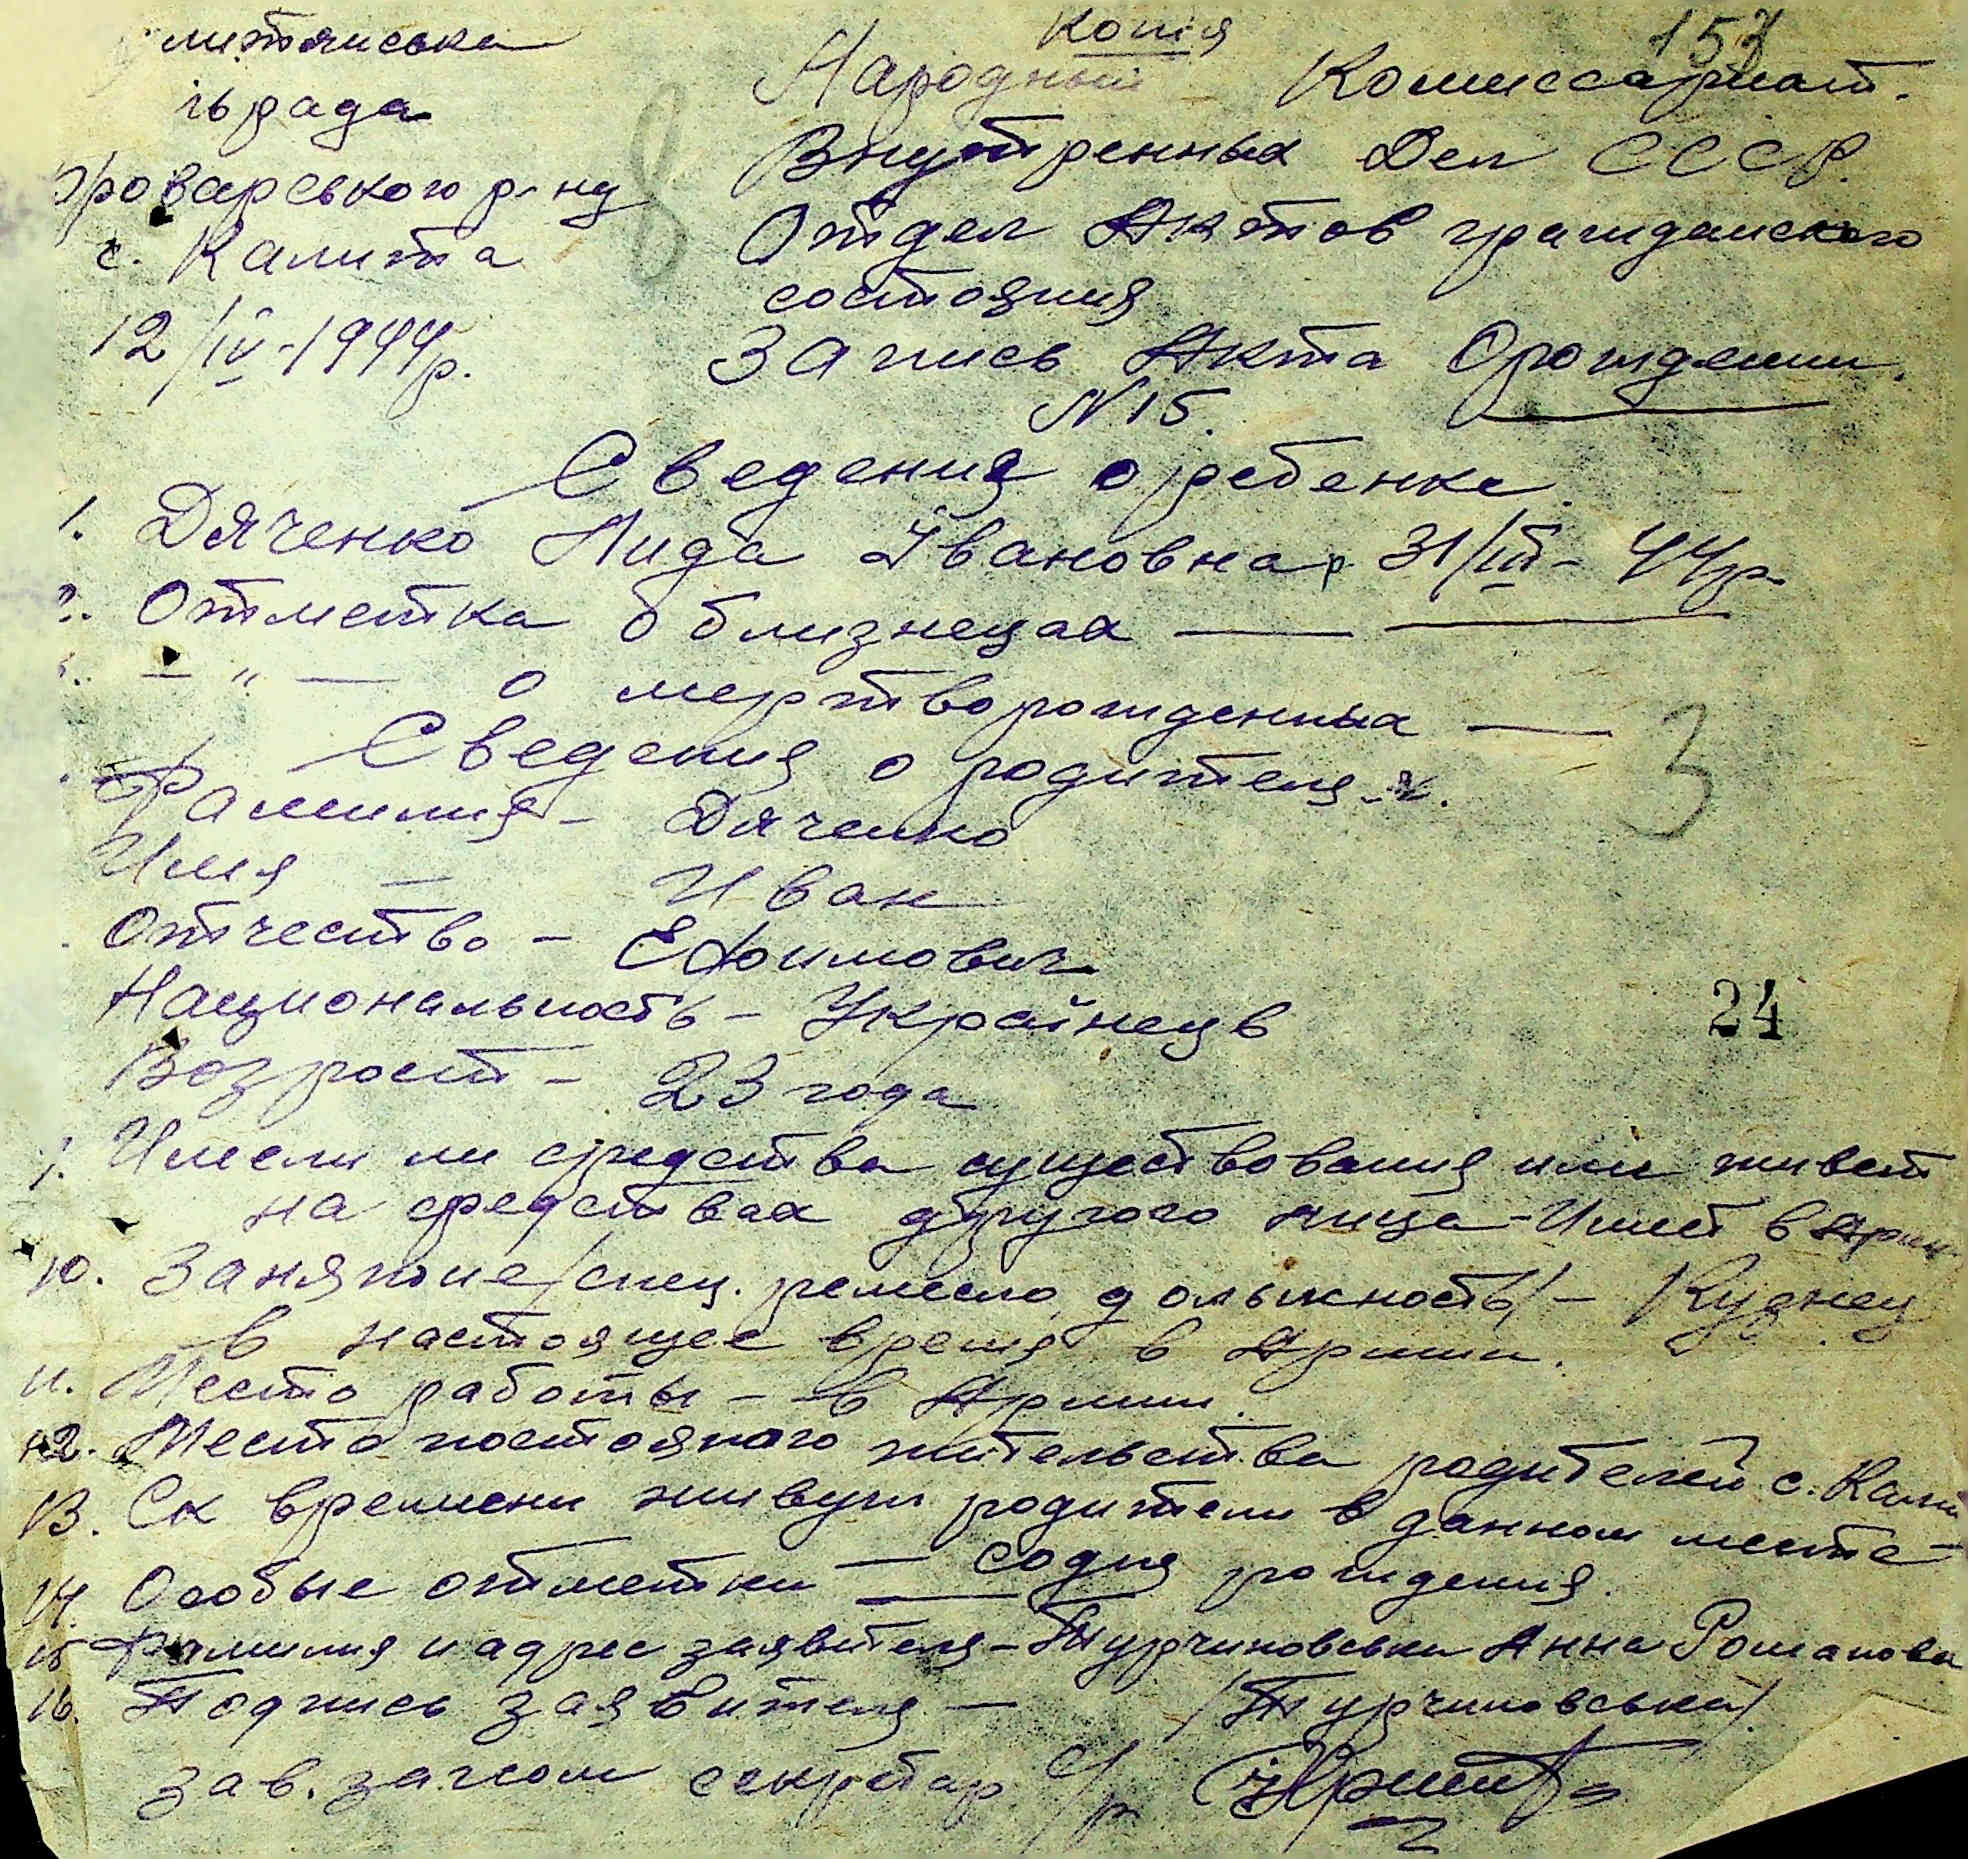 Копія
157
литянська
ьрада
роварського р-ну
с. Калита
12/IV-1944р.
8
Народный Комиссариат.
Внутренных Дел СССР.
Отдел Актов гражданского
состояния
Запись Акта О рождении.
N 15.
Сведения о ребенке.
1. Дяченко Лида Івановна р. 31/III-44р.
2. Отметка о близнецах —
— " — о мертворожденных —
Сведения о родителях.
3
Фамилия - Дяченко
Имя — Иван
Отчество - Ефимович
Национальность - Украінець
24
Возрост - 23 года
Имели ли средства существования или живет
на средствах другого лица - Имеет в Арми
10. Занятие /спец. ремесло, должность/ - Кузнец
в настоящее время в Армии.
11. Место работы - в Армии.
12. Место постояного жительства родителей с. Кали
13. Ск времени живут родители в данном месте -
со дня рождения.
14. Особые отметки —
15 Фамилия и адрес заявителя - Турчиновська Анна Романова
16. Подпись заявителя — /Турчиновська/.
Зав. загсом секретар с/р